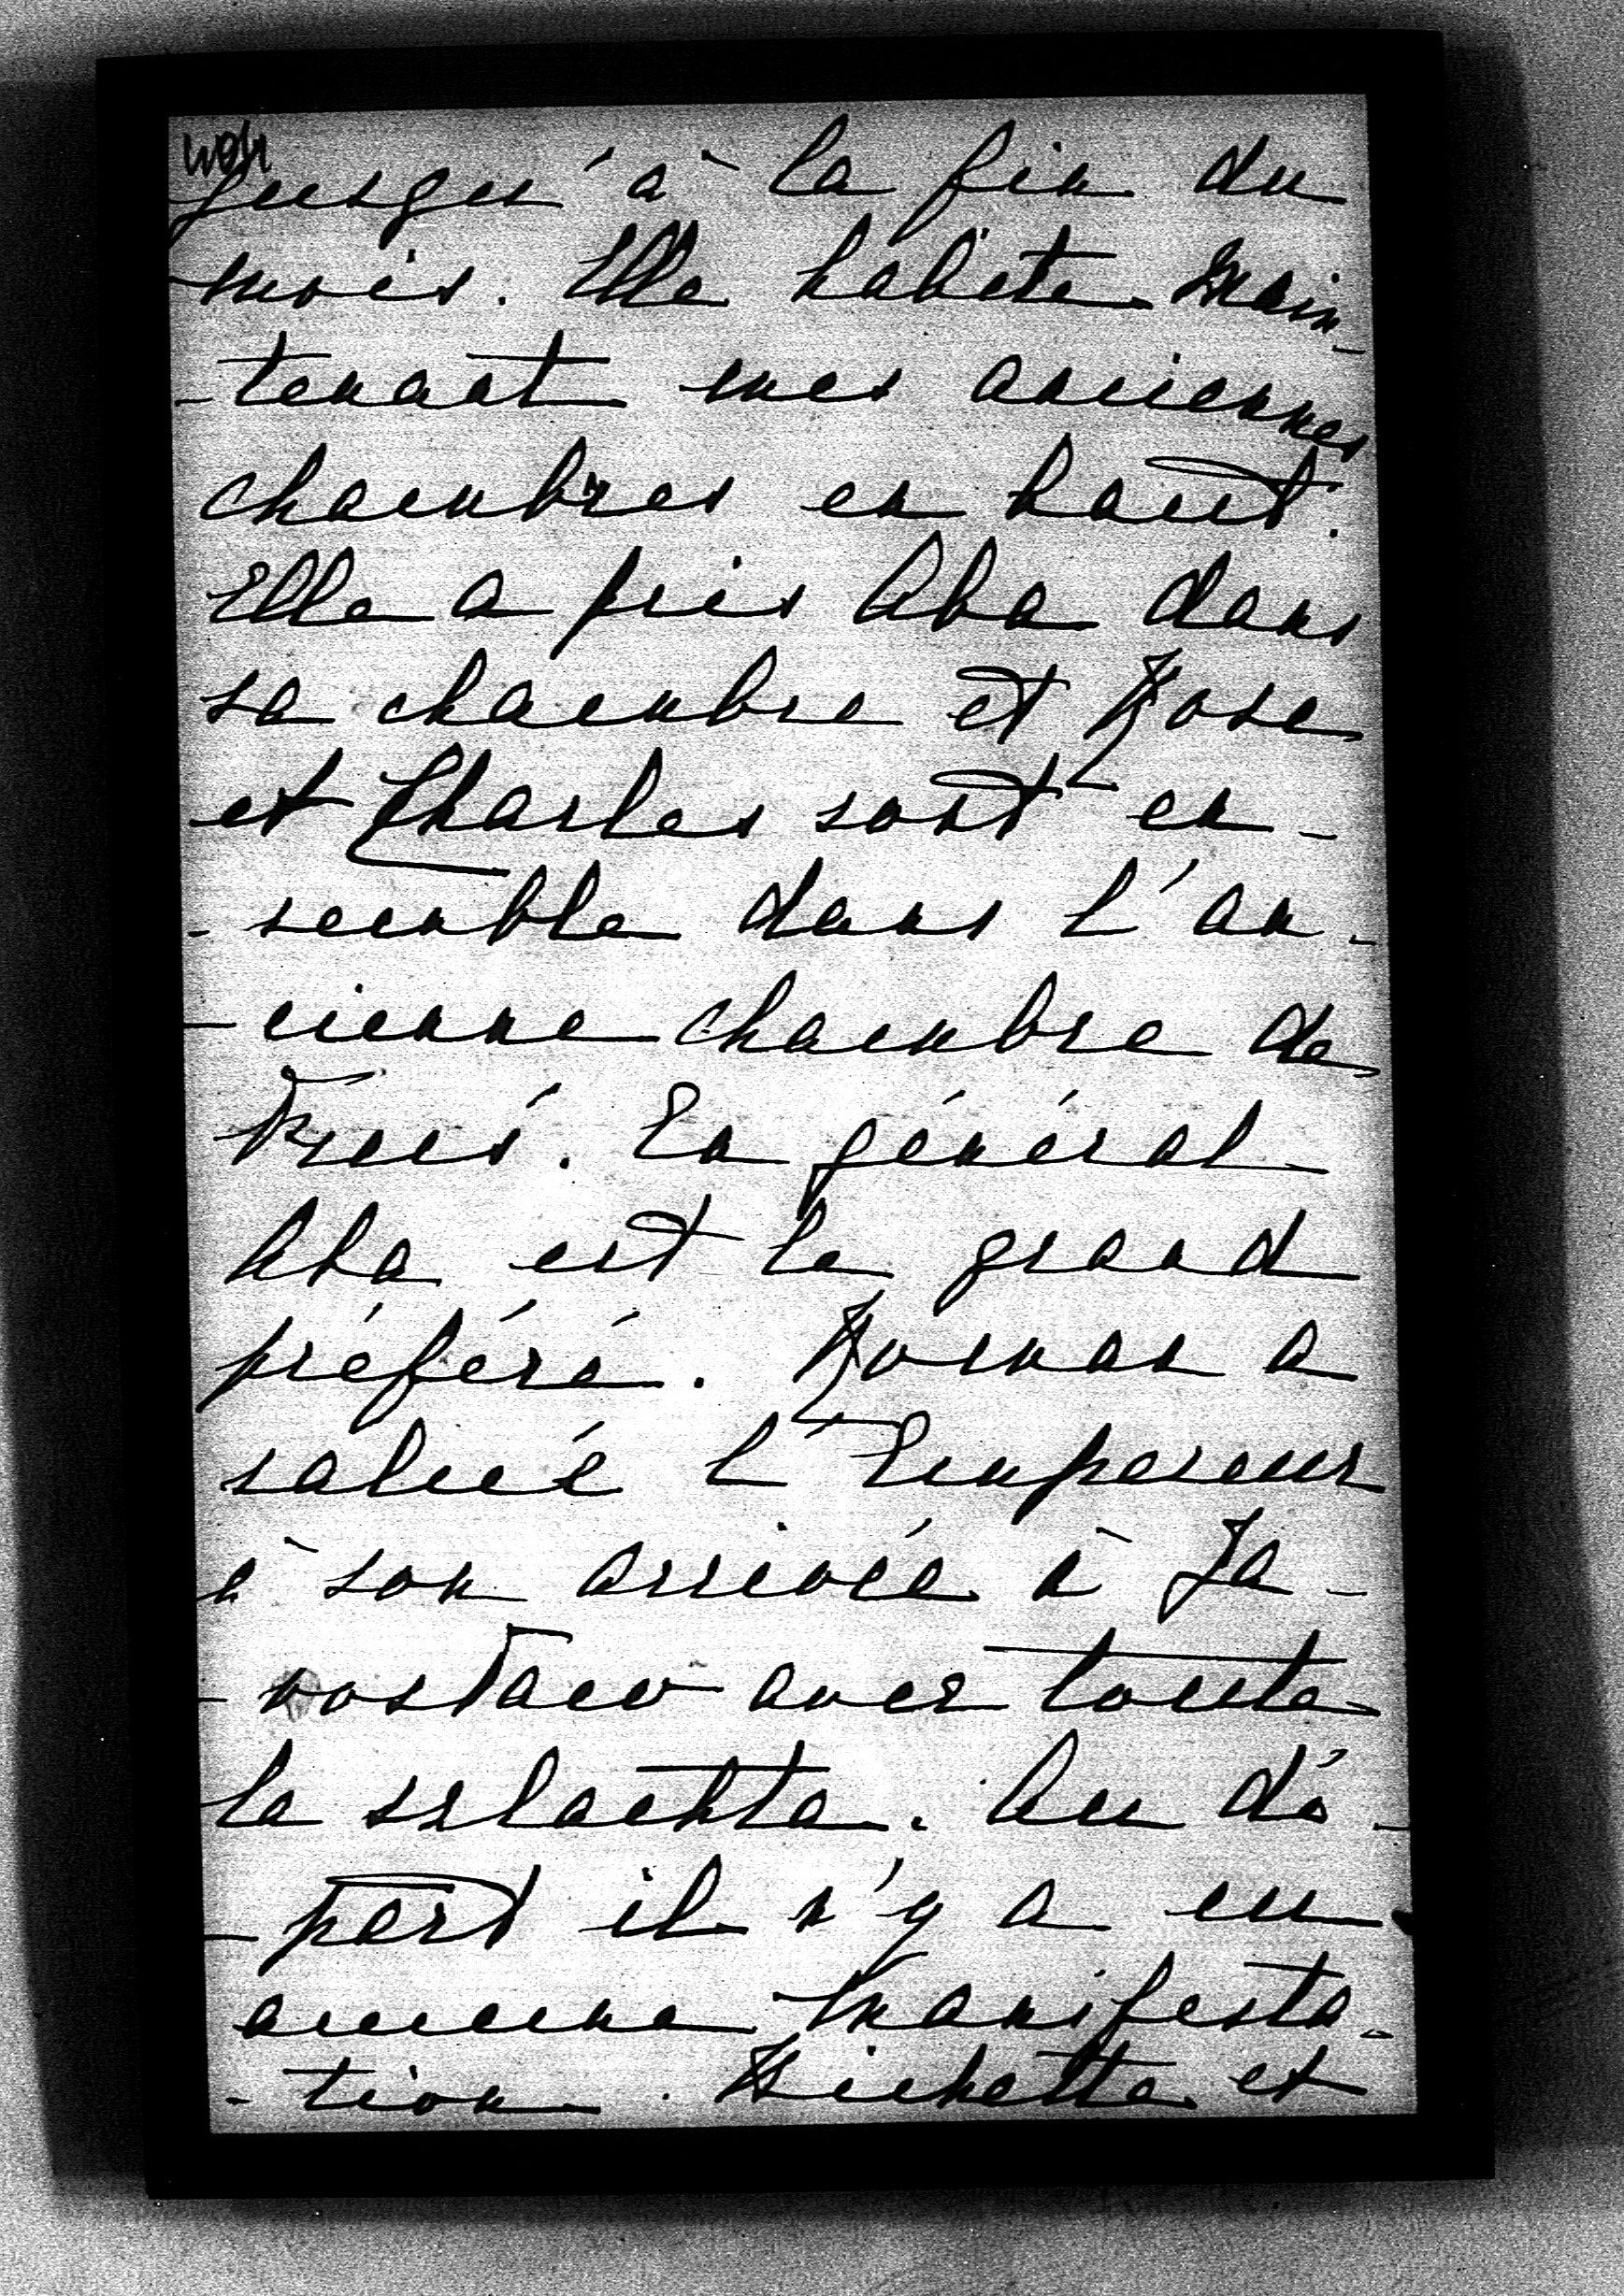 jusqu'à la fin du
mois. Elle habite main-
-tenant mes anciennes
chambres en haut.
Elle a pris Aba dans
sa chambre et Rose
et Charles sont en-
-semble dans l'an-
-cienne chambre de
En général
Aba est le grand
préféré. Roman a
salué l'Empereur
à son arrivée à Ja-
-rostaw avec toute
la szlachta. Au dé-
-part il n'y a eu
aucune manifesta-
-tion. et